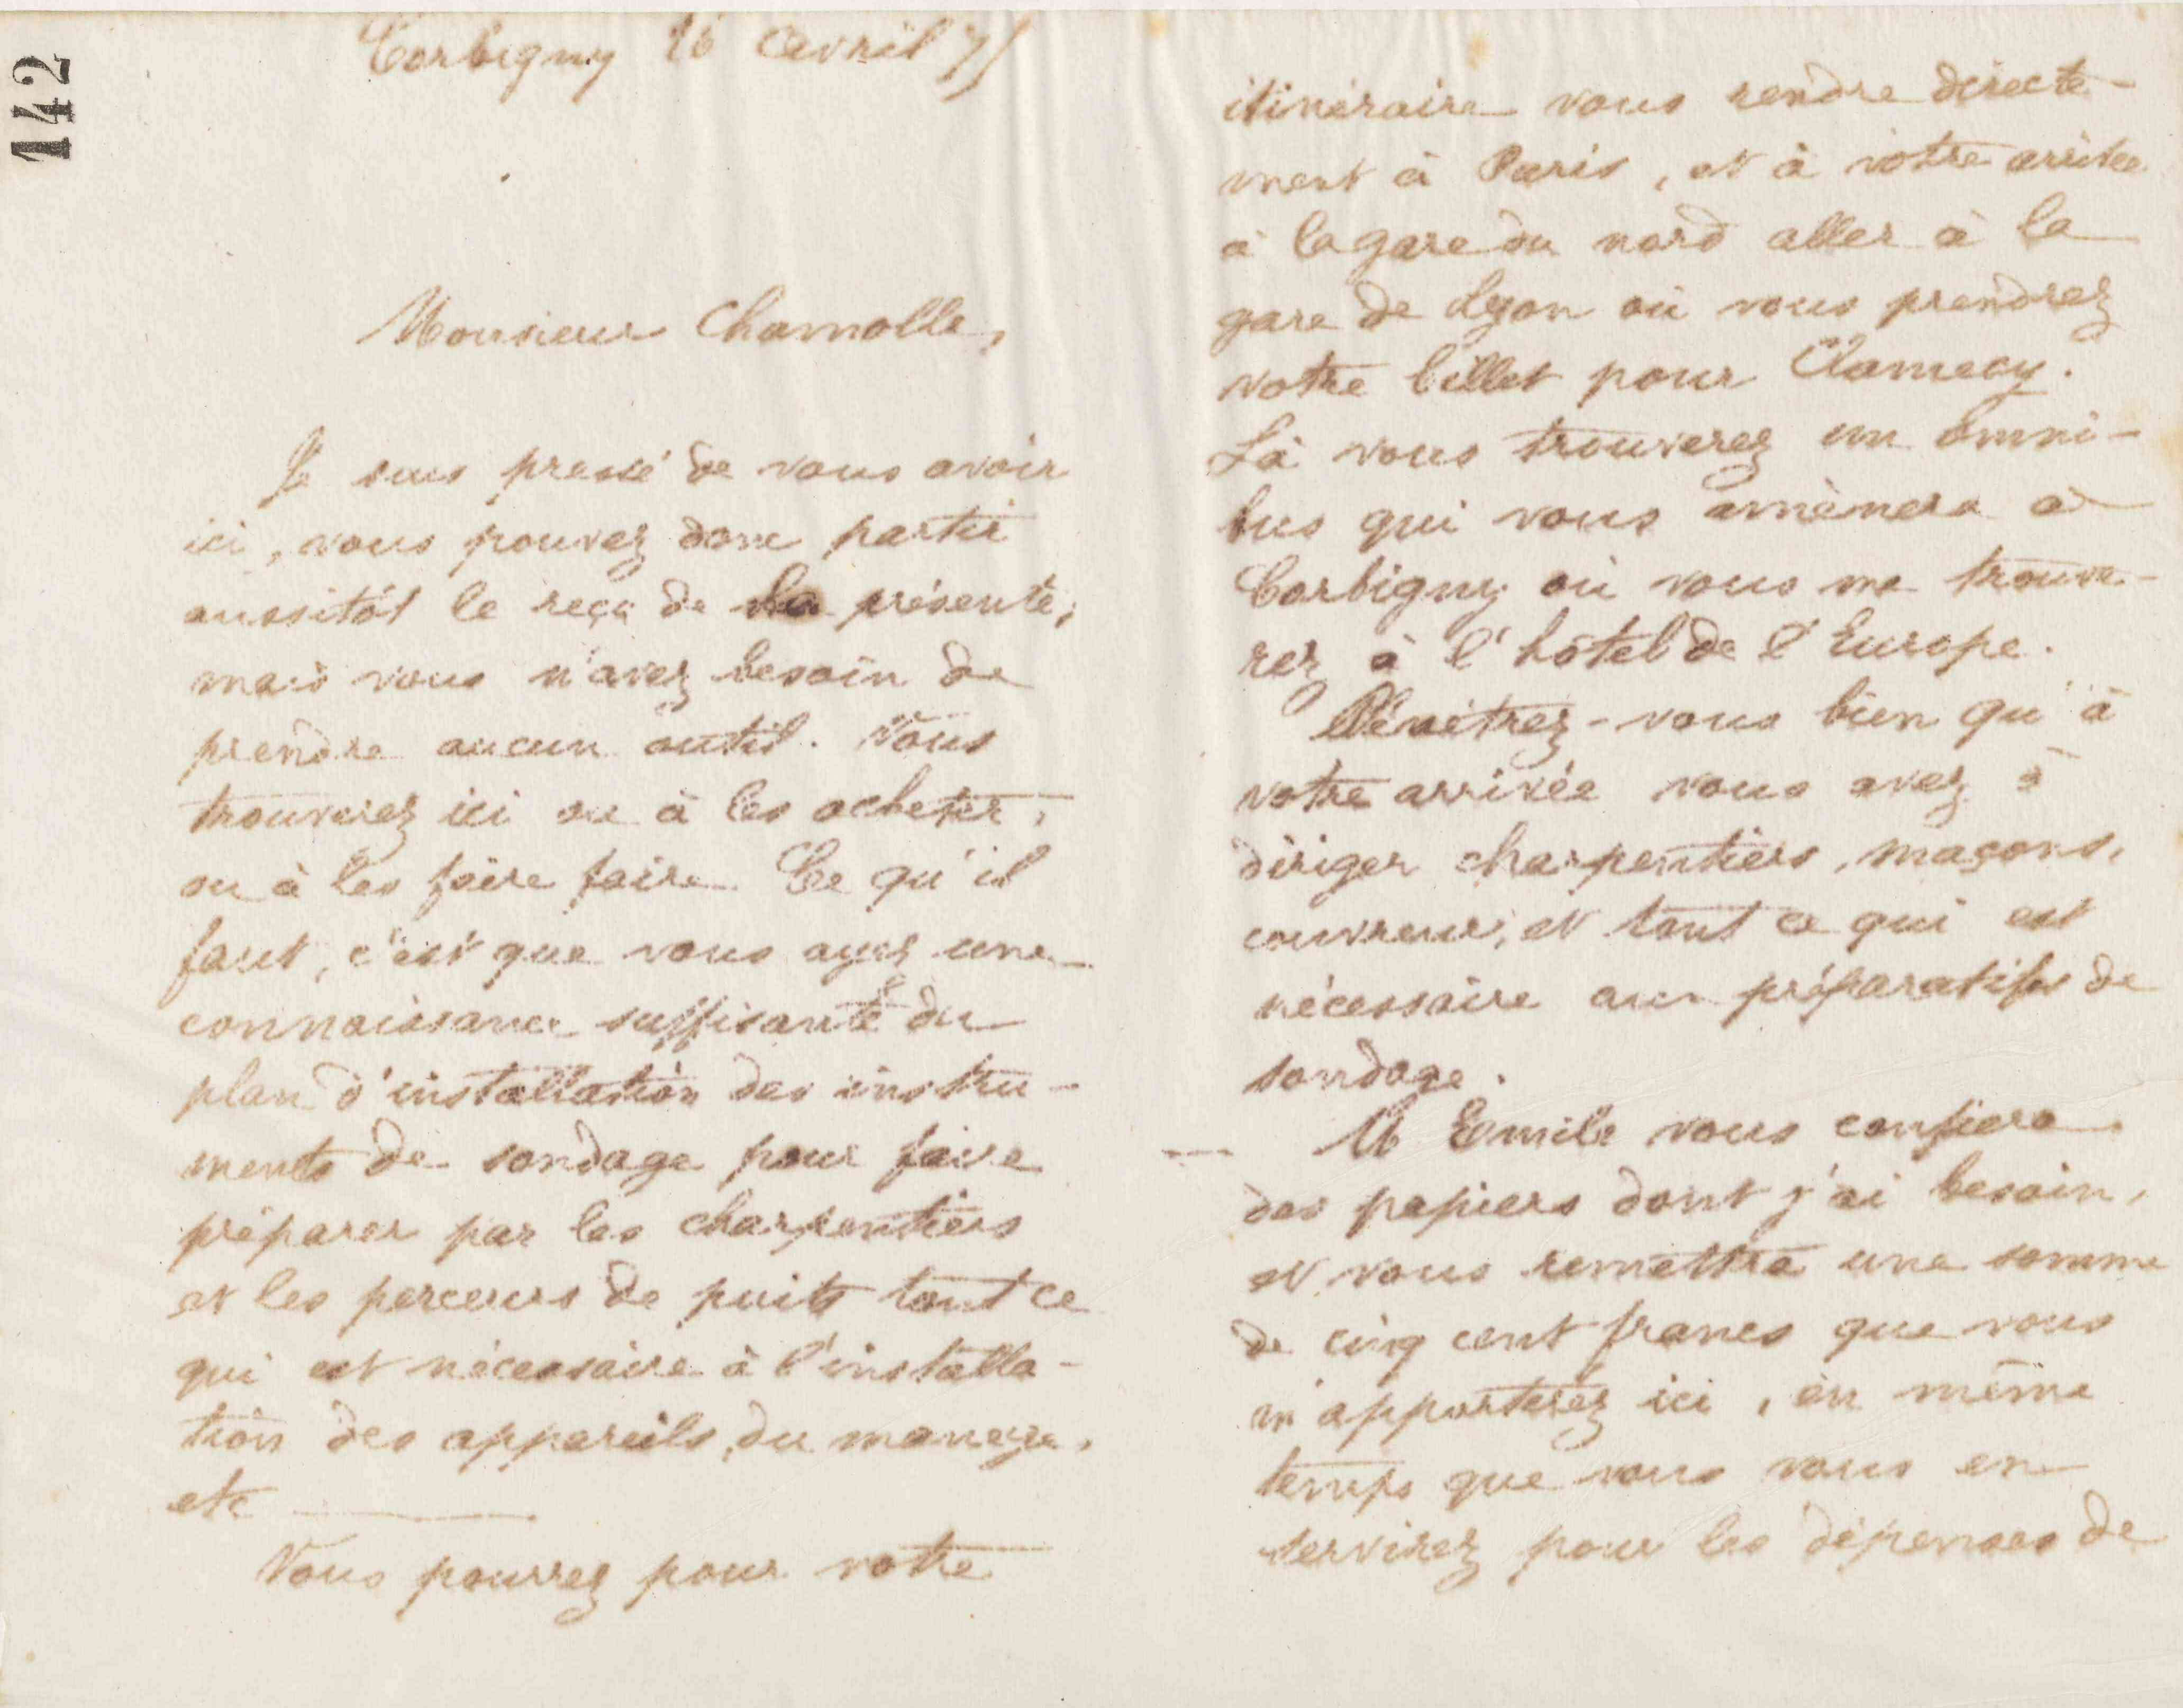 142
Corbigny 16 Avril 75
Monsieur Chamolle,
Je suis pressé de vous avoir
ici, vous pouvez donc partir
aussitôt le reçu de la présente,
mais vous n'avez besoin de
prendre aucun outil. Vous
trouverez ici ou à les acheter,
ou à les faire faire. Ce qu'il
faut, c'est que vous ayez une
connaissance suffisante du
plan d'installation des instru-
ments de sondage pour faire
préparer par les charpentiers
et les perceurs de puits tout ce
qui est nécessaire à l'installa-
tion des appareils, du manège,
etc
Vous pourrez pour votre
itinéraire vous rendre directe-
ment à Paris, et à votre arrivée
à la gare du nord aller à la
gare de Lyon où vous prendrez
votre billet pour Clamecy.
Là vous trouverez un omni-
bus qui vous amènera à
Corbigny où vous me trouve-
rez à l'hôtel de l'Europe.
Pénétrez-vous bien qu'à
votre arrivée vous avez à
diriger charpentiers, maçons,
couvreurs, et tout ce qui est
nécessaire aux préparatifs de
sondage.
M Emile vous confiera
des papiers dont j'ai besoin,
et vous remettra une somme
de cinq cent francs que vous
m'apporterez ici, en même
temps que vous vous en
servirez pour les dépenses de